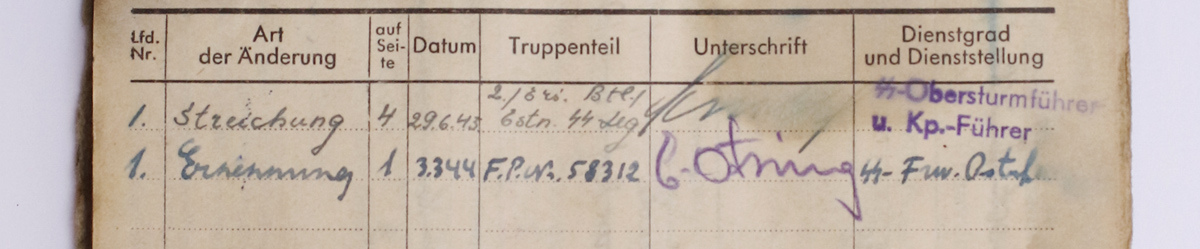 Lfd. Nr. Art der Änderung auf Sei- te Datum Truppenteil Unterschrift Dienstgrad und Dienststellung
1. Streichung 4 29.6.43 2./Ers. Btl./ Estn. ᛋᛋ Leg ᛋᛋ-Obersturmführer u. Kp.-Führer
1. Ernennung 1 3.3.44 F.P.Nr. 58312 ᛋᛋ- Frw.